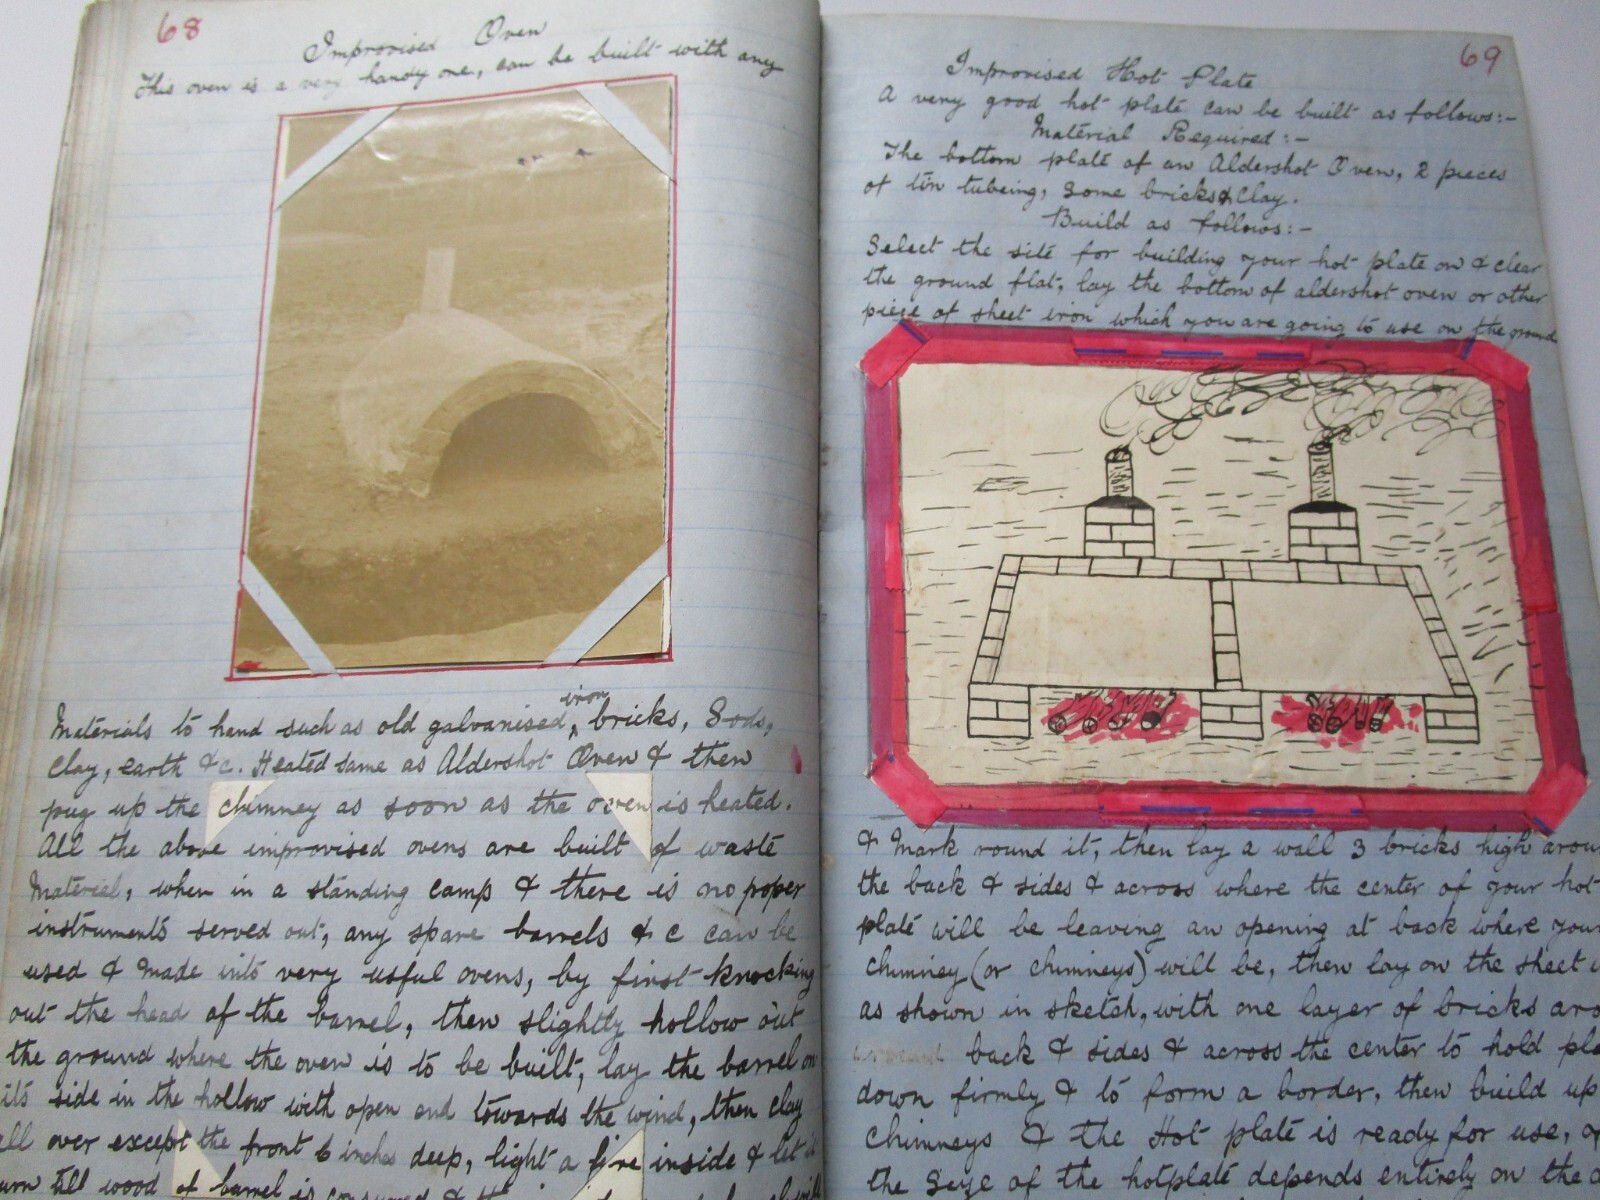 68
Improvised Oven
This oven is a very handy one, can be built with any
Materials to hand such as old galvanised, iron bricks, Sods,
Clay, earth &c. Heated same as Aldershot Oven & then
pug up the chimney as soon as the oven is heated.
All the above improvised ovens are built of waste
Material, when in a standing camp & there is no proper
instruments served out, any spare barrels & c can be
used & made into very usful ovens, by first knocking
out the head of the barrel, then slightly hollow out
the ground where the oven is to be built, lay the barrel on
its side in the hollow with open end towards the wind, then clay
all over except the front 6 inches deep, light a fire inside & let it
urn till wood of barrel is consumed & the
69
Improvised Hot Plate
A very good hot plate can be built as follows:-
Material Required:-
The bottom plate of an Aldershot Oven, 2 pieces
of tin tubeing, some bricks & Clay.
Build as follows:-
Select the site for building your hot plate on & clear
the ground flat, lay the bottom of aldershot oven or other
piece of sheet iron which you are going to use on the ground
& Mark round it, then lay a wall 3 bricks high arou
the back & sides & across where the center of your hot
plate will be leaving an opening at back where your
chimney (or chimneys) will be, then lay on the sheet
as shown in sketch, with one layer of bricks aro
back & sides & across the center to hold pla
down firmly & to form a border, then build up
chimneys & the Hot plate is ready for use,
the Size of the hotplate depends entirely on the